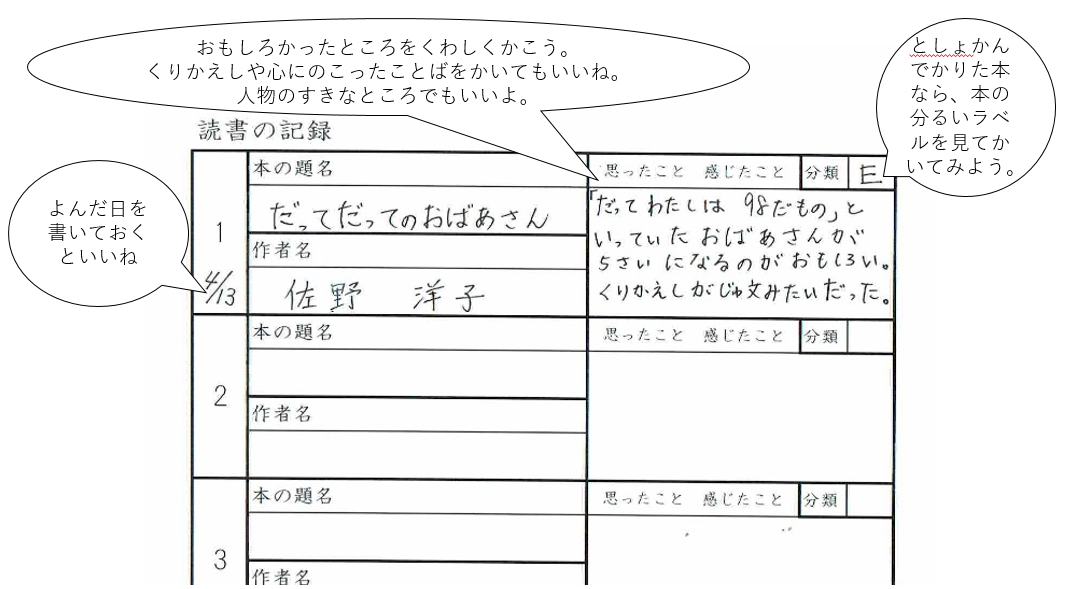 おもしろかったところをくわしくかこう。
くりかえしや心にのこったことばをかいてもいいね。
人物のすきなところでもいいよ。
としょかん
でかりた本
なら、本の
分るいラベ
ルを見てか
いてみよう。
よんだ日を
書いておく
といいね
読書の記録
1
4/13
本の題名
だってだってのおばあさん
作者名
佐野 洋子
思ったこと 感じたこと 分類 E
「だってわたしは 98だもの」と
いっていたおばあさんが
5さいになるのがおもしろい。
くりかえしがじゅ文みたいだった。
2
本の題名
作者名
思ったこと 感じたこと 分類
3
本の題名
作者名
思ったこと 感じたこと 分類